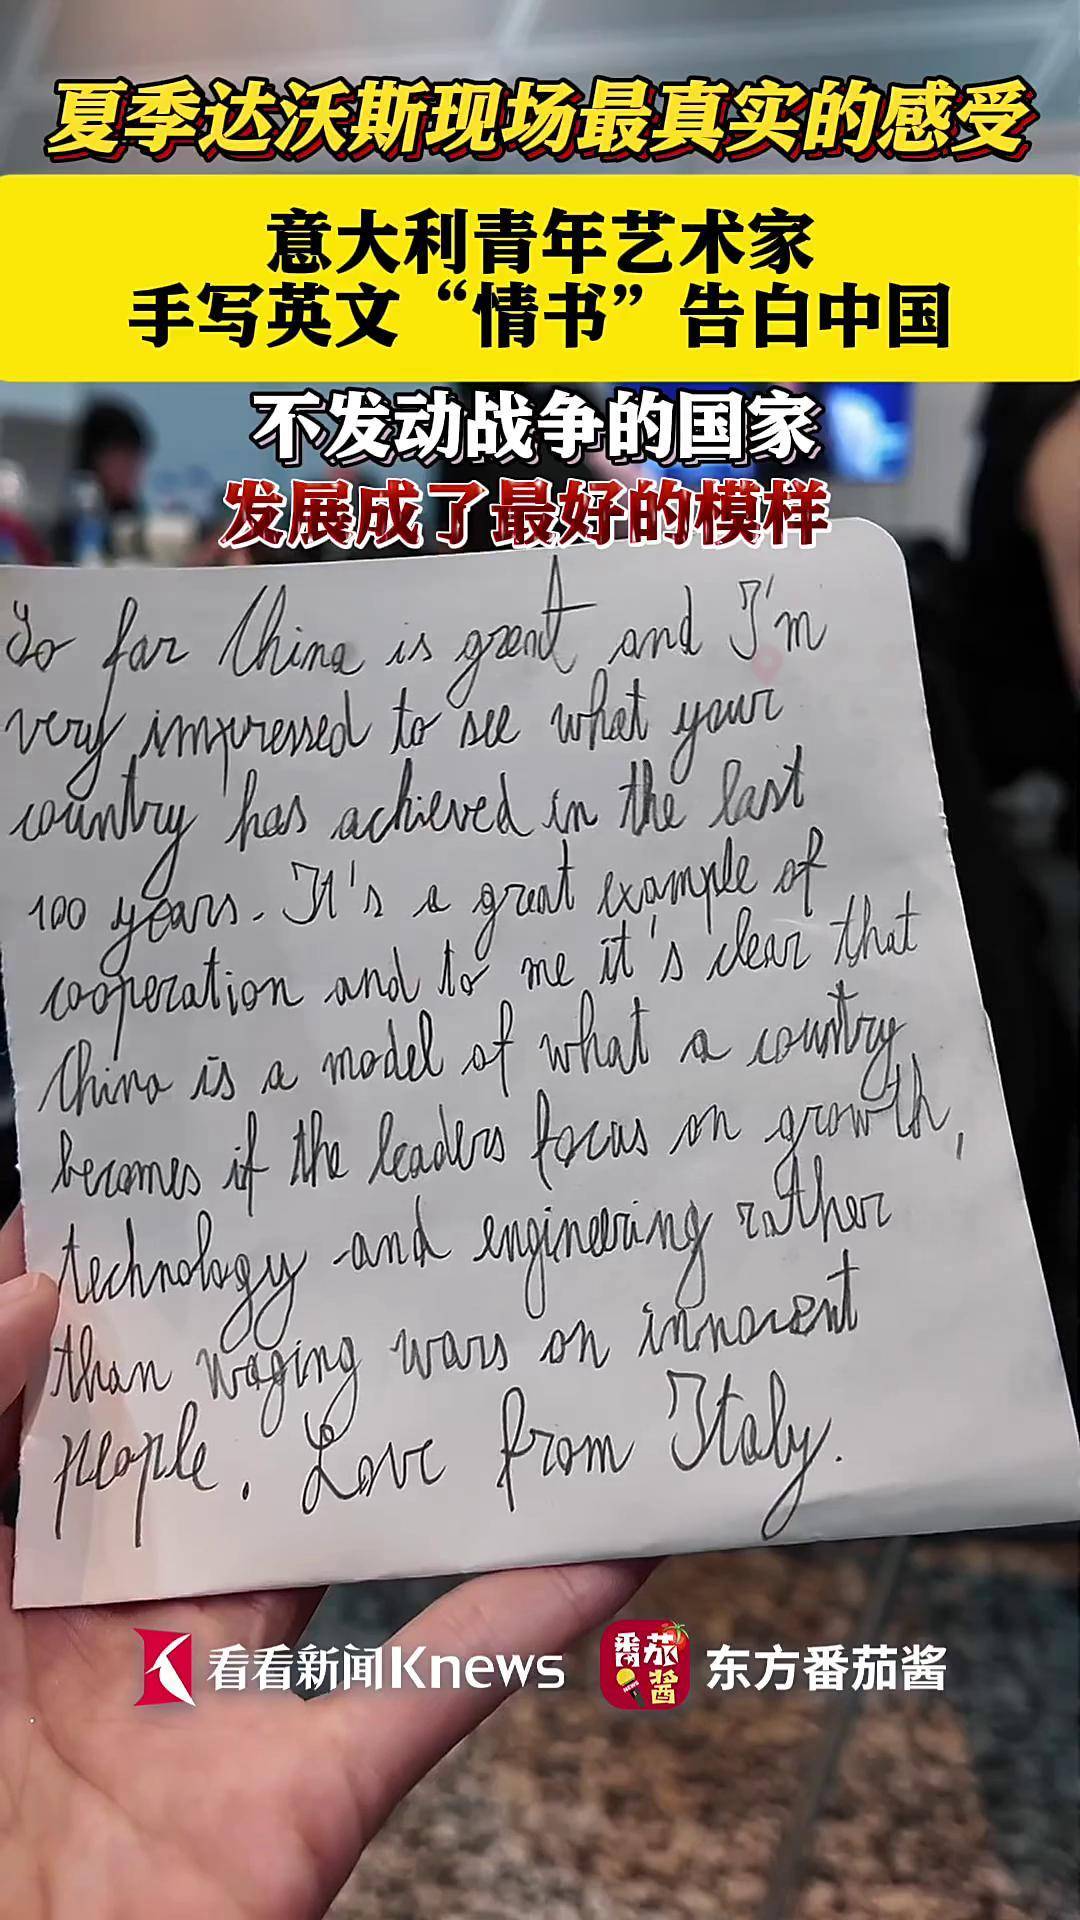 夏季达沃斯现场最真实的感受
意大利青年艺术家
手写英文“情书”告白中国
不发动战争的国家
发展成了最好的模样
So far China is great and I'm
very impressed to see what your
country has achieved in the last
100 years. It's a great example of
cooperation and to me it's clear that
China is a model of what a country
becomes if the leaders focus on growth,
technology and engineering rather
than waging wars on innocent
people. Love from Italy.
看看新闻Knews
番茄酱
NEWS
东方番茄酱